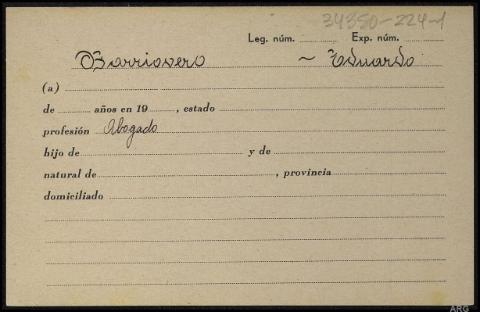 34350-224-1
Leg. núm. Exp. núm.
Barriovero ~ Eduardo
(a)
de años en 19 , estado
profesión Abogado
hijo de y de
natural de , provincia
domiciliado
ARG